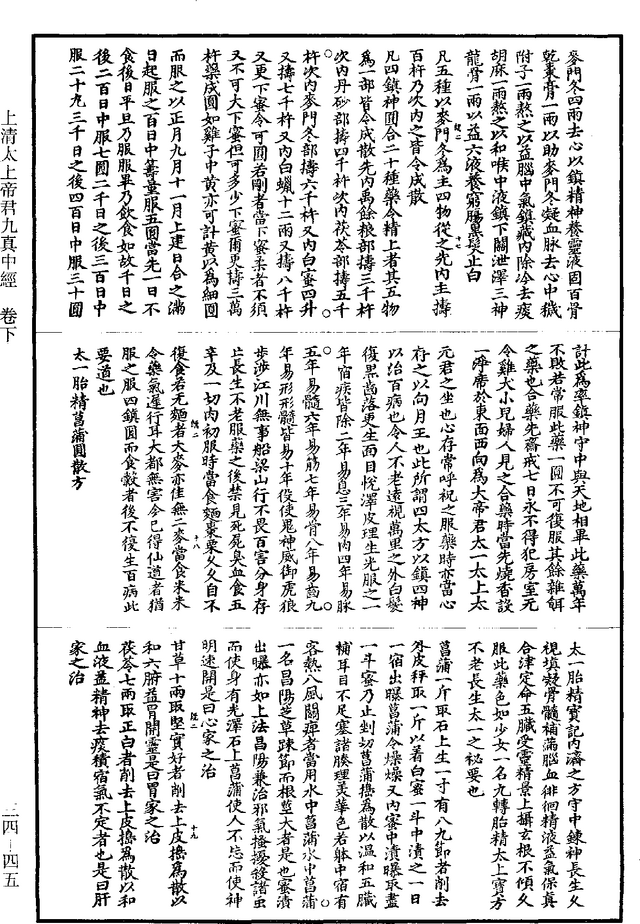 麥門冬四兩去心以鎮精神養靈液固百骨
乾棗膏一兩以助麥門冬凝血脉去心中穢
附子一兩熬之以益腦中氣鎮藏内除冷去痰
胡麻一兩熬之以和喉中液鎮下關泄澤三神
龍骨一兩以益六液養窮腸黑髮止白
凡五種以麥門冬爲主四物從之先内主擣
百杵乃次内之皆令成散
凡四鎮神圓合二十種藥令精上者其五物
爲一部皆令成散先内禹餘粮部擣三千杵
次内丹砂部擣四千杵次内茯苓部擣五千
杵次内麥門冬部擣六千杵又内白蜜四升
又擣七千杵又内白蠟十二兩又擣八千杵
又更下蜜令可圓若剛者當下蜜柔者不須
又不可大下蜜但可多少下蜜爾更擣三萬
杵藥成圓如雞子中黄亦可計黄以爲細圓
而服之以正月九月十一月上建日合之滿
日起服之百日中籌量服五圓當先一日不
食後日平旦乃服服畢乃飲食如故千日之
後二百日中服七圓二千日之後三百日中
服二十九三千日之後四百日中服三十圓
計此爲率鎮神守中與天地相畢此藥萬年
不敗若常服此藥一圓不可復服其餘雜餌
之藥也合藥先齋戒七日永不得犯房室无
令雞犬小兒婦人見之合藥時當先燒香設
一淨席於東面西向爲大帝君太一太上太
元君之坐也心存常呼祝之服藥時亦當心
存之以向月王也此所謂四太方以鎮四神
以治百病也令人不老遠視萬里之外白髮
復黑齒落更生面目悅澤皮理生光服之一
年宿疾皆除二年易息三年易肉四年易脉
五年易髓六年易筋七年易骨八年易齒九
年易形形髓皆易十年役使鬼神威御虎狼
步涉江川無事船梁山行不畏百害分身存
亡長生不老服藥之後禁見死屍臭血食五
辛及一切肉初服時當食麵棗栗久久自不
復食若无麵者大麥亦佳無二麥當食禾米
令藥氣遲行耳大都無害令已得仙道者猶
服之服四鎮圓而食穀者後不復生百病此
要道也
太一胎精菖蒲圓散方
太一胎精寶記内濟之方守中錬神長生久
視填凝骨髓補滿腦血徘徊精液益氣保真
合津定命五臟受靈精景上攝玄根不傾久
服此藥色如少女一名九轉胎精太上寶方
不老長生太一之秘要也
菖蒲一斤取石上生一寸有八九節者削去
外皮秤取一斤以着白蜜一斗中漬之一日
一宿出曝菖蒲令燥燥又内蜜中漬曝取盡
一斗蜜乃止剉切菖蒲擣爲散以温和五臟
補耳目不足塞諸腠理美華色若躰中宿有
客熱八風關痺者當用水中菖蒲水中菖蒲
一名昌陽芝草踈節而根莖大者是也蜜漬
出曝亦如上法昌陽兼治邪氣搔擾發諸虫
而使身有光澤石上菖蒲使人不忘而使神
明速開是曰心家之治
甘草十兩取堅實好者削去上皮擣爲散以
和六腑益胃開靈是曰胃家之治
茯苓七兩取正白者削去上皮擣爲散以和
血液益精神去痰積宿氣不定者也是曰肝
家之治
上清太上帝君九真中經 卷下
三四—四五